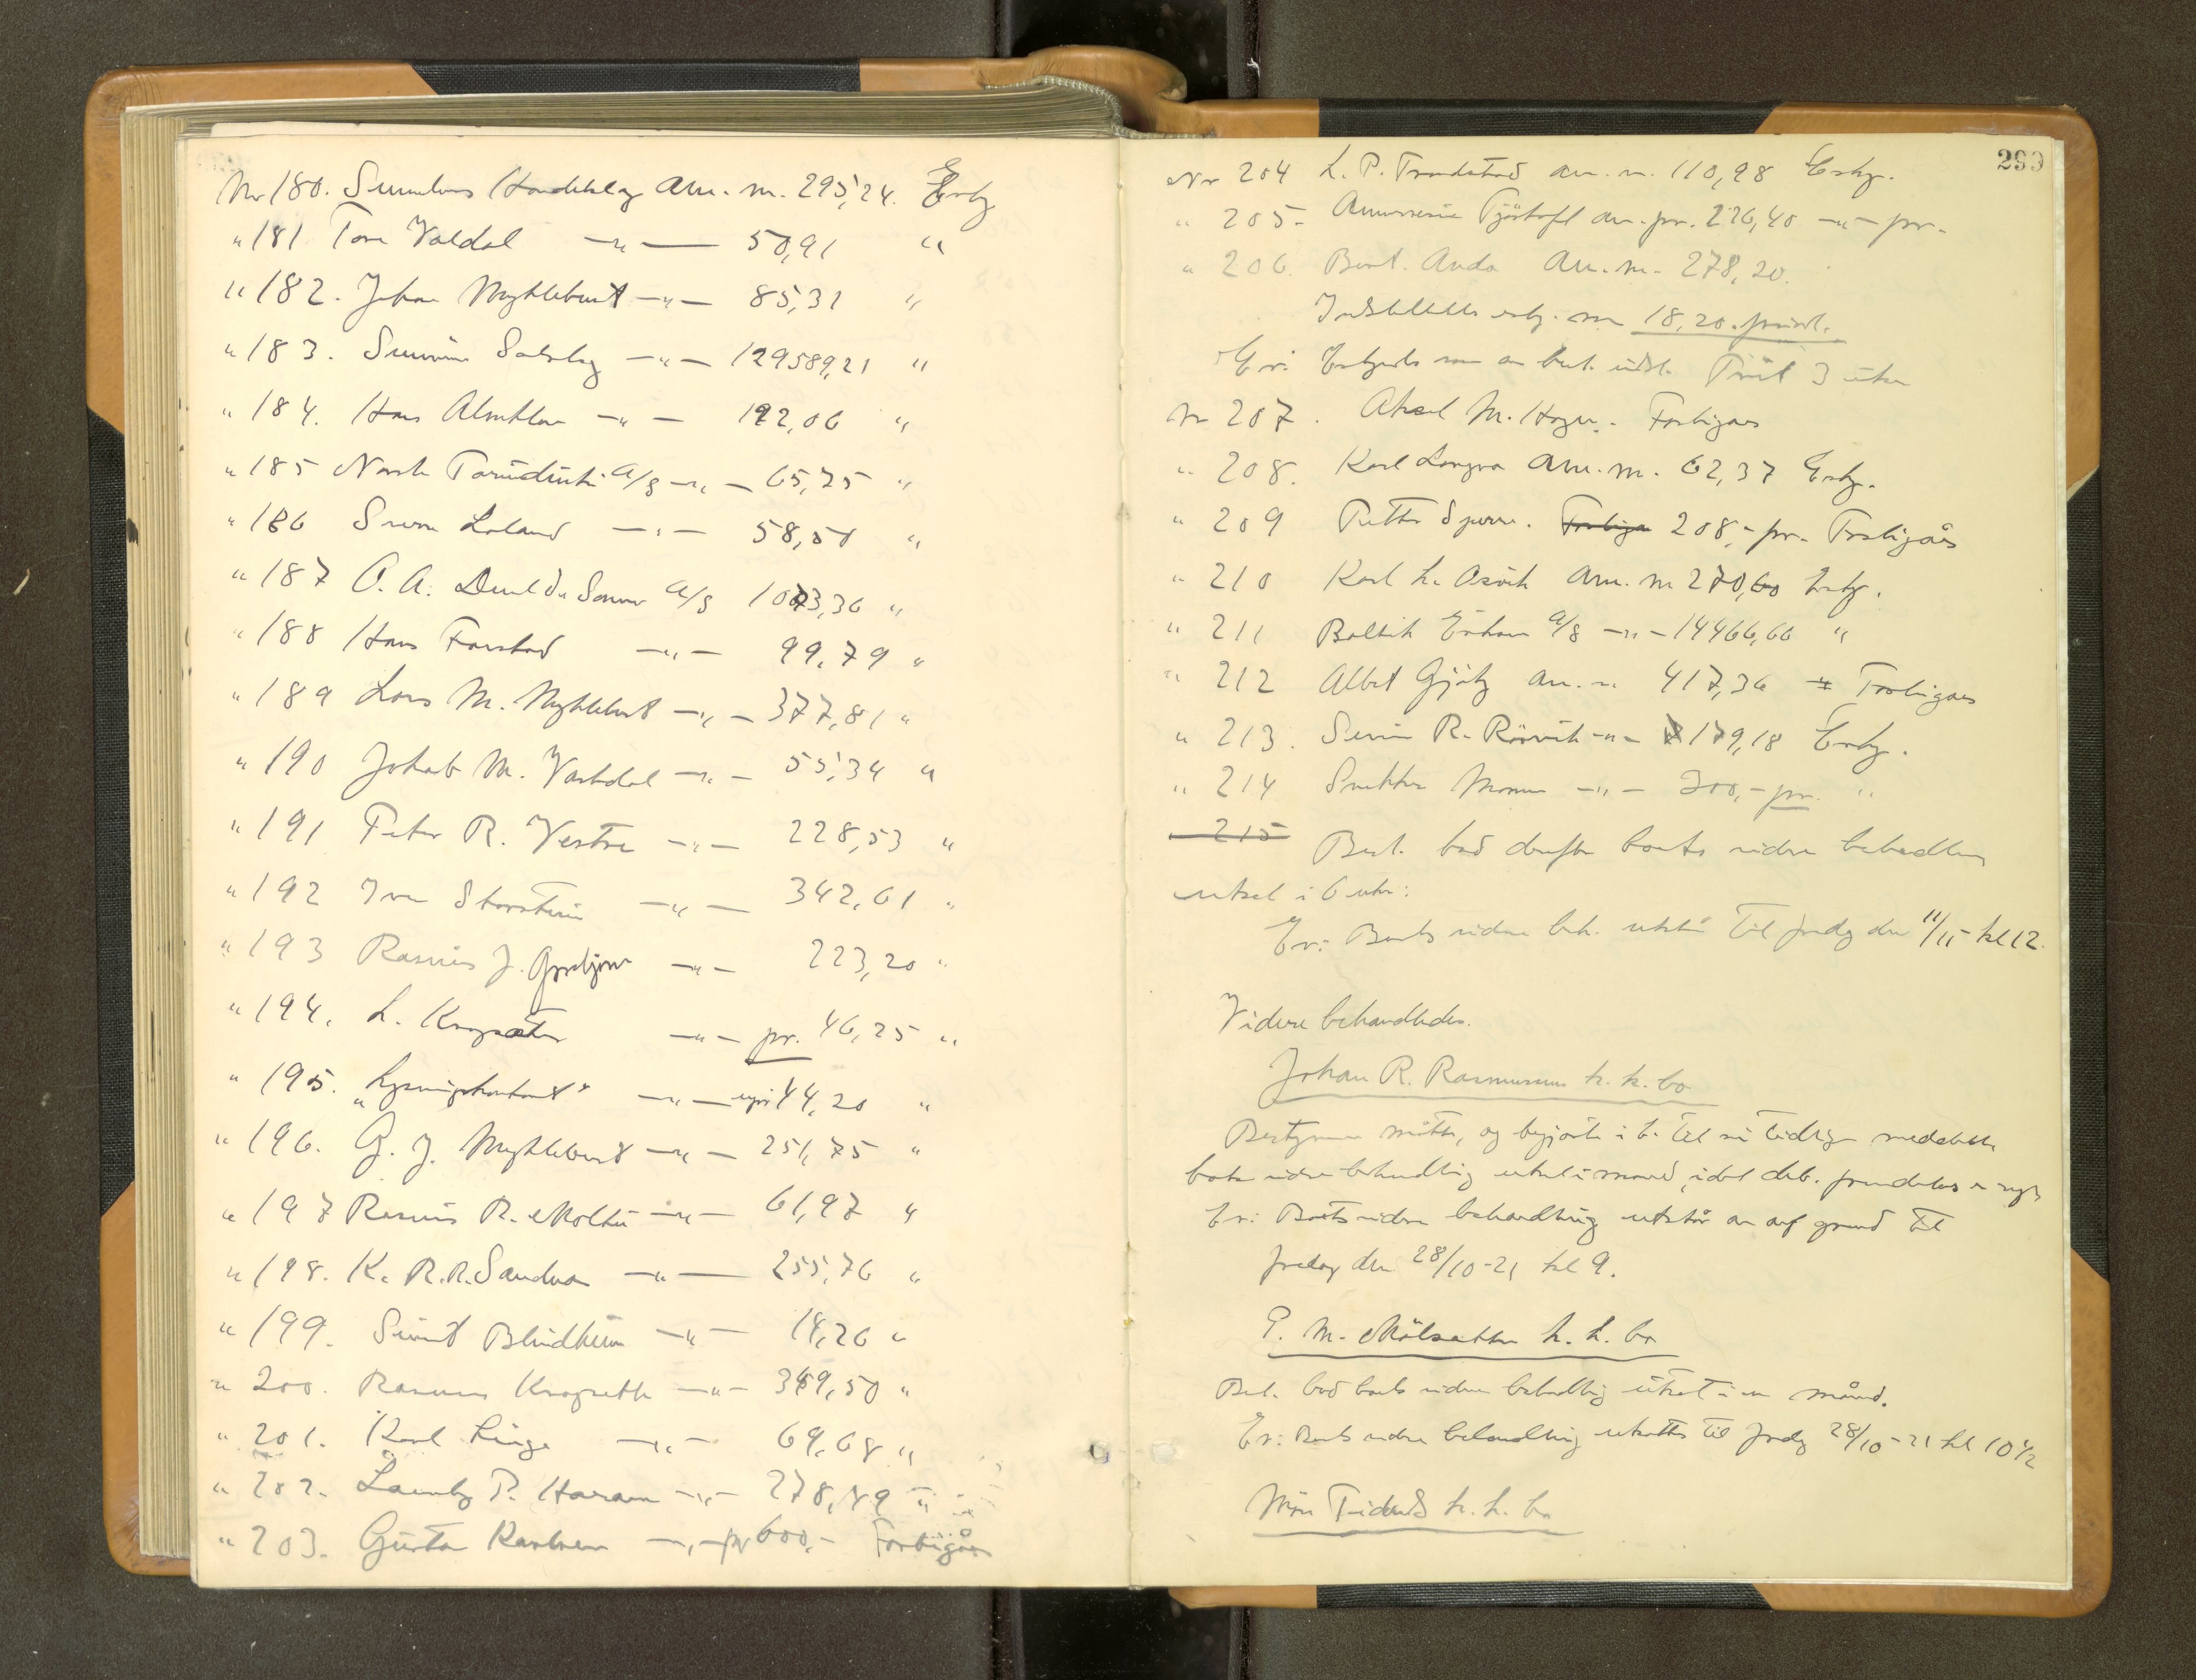 Nr 180. Sunmøres Handelslag Anm. m. 295,24. Erkj
" 181 Tore Valdal —"— 50,91 "
" 182. Johan Myklebust —"— 85,31 "
" 183. Sunnm. Salslag —"— 129589,21 "
" 184. Hans Almklov —"— 192,06 "
" 185 Norsk a/s —"— 65,75 "
" 186 Svern Loland —"— 58,50 "
" 187 O. A. Devold's Sønner a/s 1073,36 "
" 188 Hans Farstad —"— 99,79 "
" 189 Lars M. Myklebust —"— 377,81 "
" 190 Jakob M. Vartdal —"— 55,34 "
" 191 Peter R. Vestre —"— 228,53 "
" 192 Iver Storstein —"— 342,61 "
" 193 Rasmus J. —"— 223,20 "
" 194. L. Kropsæter —"— pr. 46,25 "
" 195. „Lysningskontoret" —"— 44,20 "
" 196. G. J. Myklebust —"— 251,75 "
" 197 Rasmus R. Moltu —"— 61,97 "
" 198. K. R. R. Sandva —"— 255,76 "
" 199. Sivert Blindheim —"— 14,26 "
" 200. Rasmus Kropseth —"— 349,50 "
" 201. Karl Linge —"— 69,68 "
" 202. Lauritz P. Haram —"— 278,49 "
" 203. Gustav Karlsen —"— pr 600,- Forbigåes
293
Nr 204 L. P. Trandstad an. m. 110,98 Erkj.
" 205- Tjøstofl an. pr. 226,40 —"— pr.
" 206. Bernt. Anda Anm. m. 278,20.
Indstilledes erkj. m 18,20. privil.
Er: Erkjendes som av best. indst. Frist 3 uker
Nr 207. Aksel M. Hagen. Forbigaaes
" 208. Karl Longva Anm. m. 62,37 Erkj.
" 209 Petter Sperre. Forbigaa 208,- pr. Forbigåes
" 210 Karl L. Osvik Anm. m 270,60 Erkj.
" 211 Baltik Enhow a/s —"— 14466,66 "
" 212 Albert Gjörtz an. m 417,36 Forbigaaes
" 213. Severin R. Rörvik —"— 179,18 Erkj.
" 214 —"— 300,- pr. "
215
Best. bad derefter boets videre behandling
utsat i 6 uker:
Er: Boets videre beh. utstår til fredag den 11/11- kl 12.
Videre behandledes.
Johan R. Rasmussens k. k. bo
Bestyreren møtte, og begjærte i h. til sin tidligere meddelelse
boets videre behandling utsat 1 maaned, idet deb. er syk
Er: Boets videre behandling utstår av anf grund til
fredag den 28/10-21 kl 9.
P. M. Mölsætters k. k. bo
Best. bad boets videre behandling utsat i en måned.
Er: Boets videre behandling utsættes til fredag 28/10-21 kl 10½
Møre Tidends k. k. bo